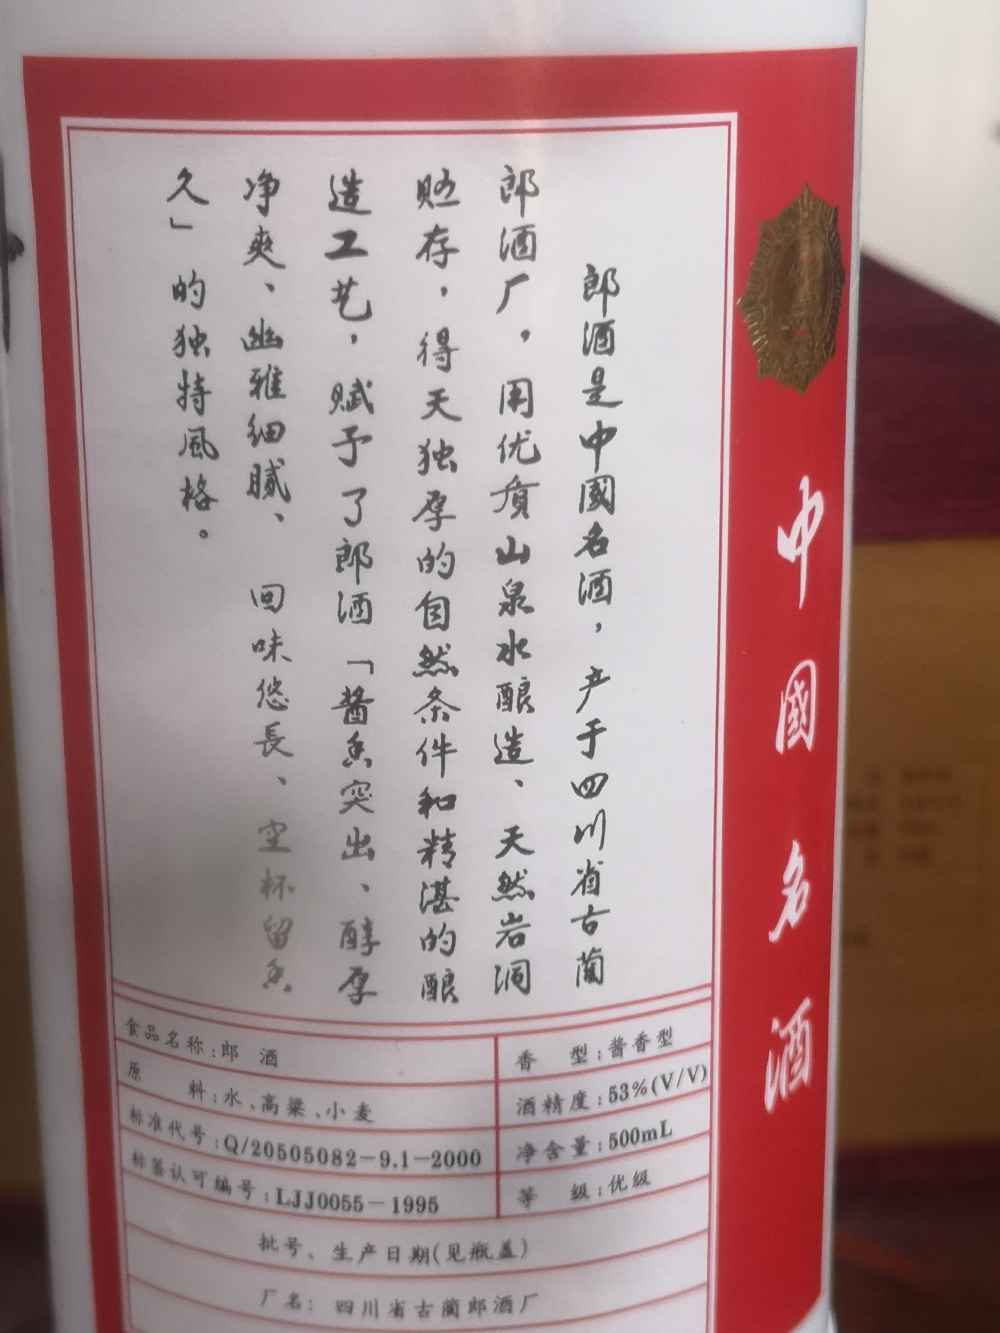 中國名酒
郎酒是中國名酒，产于四川省古蔺
郎酒厂，用优质山泉水酿造、天然岩洞
贮存，得天独厚的自然条件和精湛的酿
造工艺，赋予了郎酒「酱香突出、醇厚
净爽、幽雅细腻、回味悠長、空杯留香
久」的独特風格。
食品名称:郎 酒
香 型:酱香型
原 料:水、高粱、小麦
酒精度:53%(V/V)
标准代号:Q/20505082-9.1-2000
净含量:500mL
标签认可编号:LJJ0055-1995
等 级:优级
批号、生产日期(见瓶盖)
厂名: 四川省古蔺郎酒厂